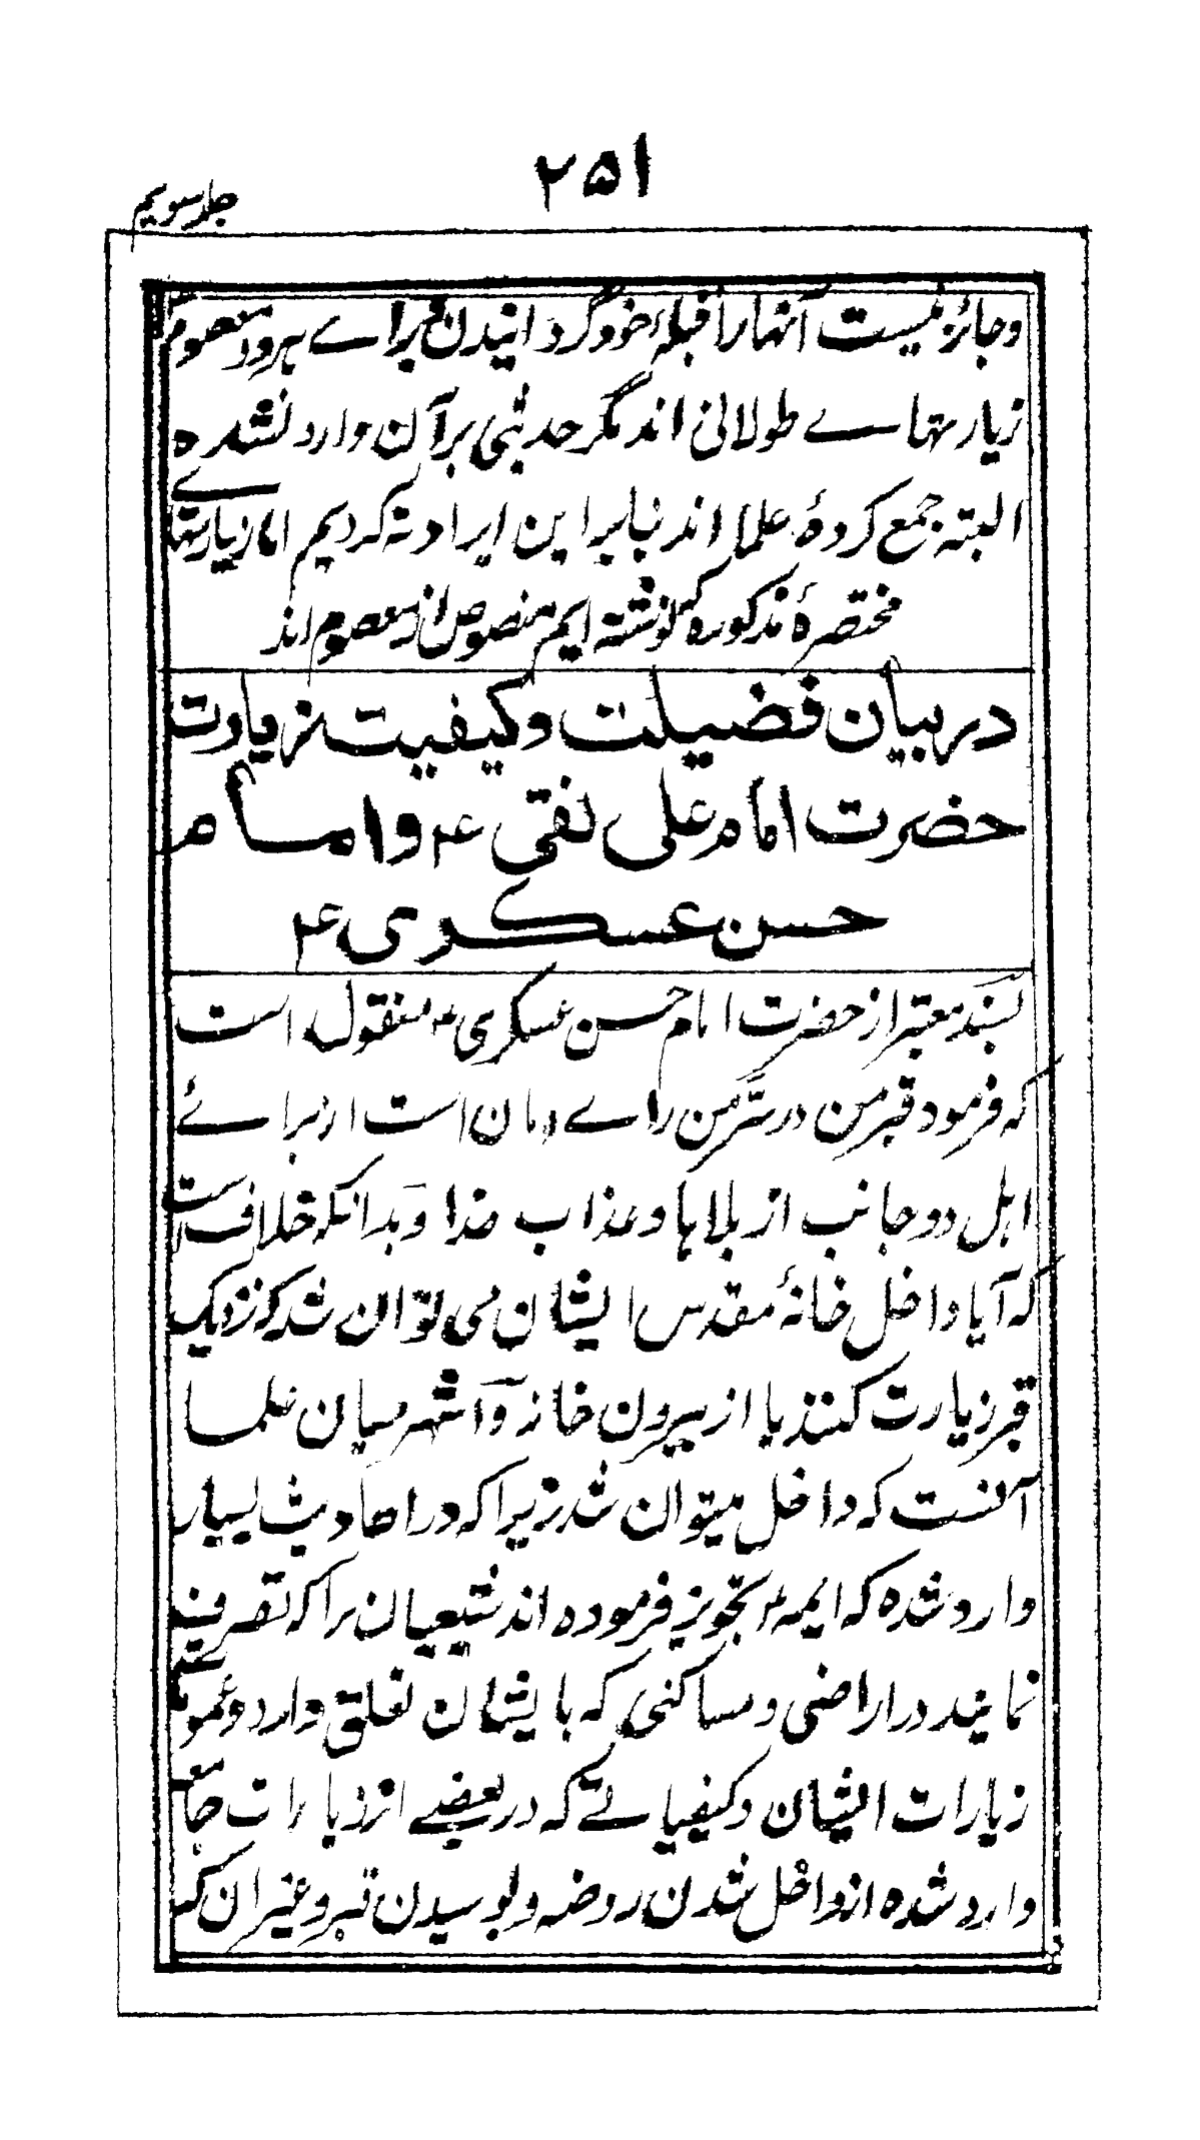 ۲۵۱
جلد سویم
و جائز نیست آنها را قبلۂ خود گردانیدن براے هر دو معصوم
زیارتهاے طولانی اند مگر حدیثی بر آن وارد نشده
البته جمع کردۂ علما اند بنابر این ایراد نه کردیم اما زیارتهاے
مختصرۂ مذکوره که نوشته ایم منصوص از معصوم اند
در بیان فضیلت و کیفیت زیارت
حضرت امام علی نقی ع و امام
حسن عسکری ع
بسند معتبر از حضرت امام حسن عسکری ع منقول است
که فرمود قبر من در سرّ من راے امان است از برائے
اهل دو جانب از بلاها و عذاب خدا و بدانکه خلاف است
که آیا داخل خانۂ مقدس ایشان می توان شد که نزدیک
قبر زیارت کنند یا از بیرون خانه و اشهر میان علما
آنست که داخل میتوان شد زیرا که در احادیث بسیار
وارد شده که ایمه ع تجویز فرموده اند شیعیان را که تصرف
نمایند در اراضی و مساکنی که بایشان تعلق دارد و عموم
زیارات ایشان و کیفیاتے که در بعضے از زیارات جامعه
وارد شده از داخل شدن روضه و بوسیدن قبر و غیر ان که